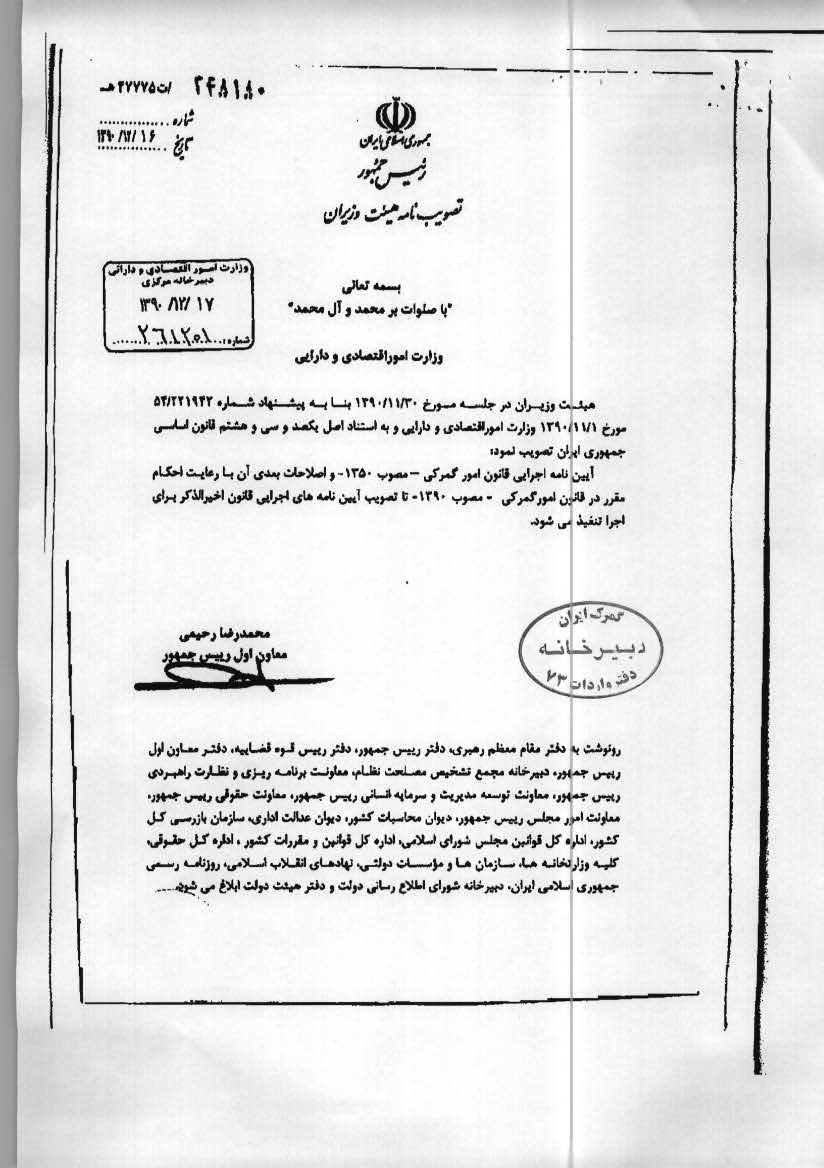 ۲۴۸۱۸۰ /ت۴۷۷۷۵هـ
شماره
تاریخ ۱۳۹۰/۱۲/۱۶
جمهوری اسلامی ایران
رئیس جمهور
تصویب نامه هیئت وزیران
وزارت امور اقتصادی و دارائی
دبیرخانه مرکزی
۱۳۹۰/۱۲/۱۷
شماره: ۲۶۱۲۵۱
بسمه تعالی
"با صلوات بر محمد و آل محمد"
وزارت اموراقتصادی و دارایی
هیئت وزیران در جلسه مورخ ۱۳۹۰/۱۱/۳۰ بنا به پیشنهاد شماره ۵۴/۲۲۱۹۴۲
مورخ ۱۳۹۰/۱۱/۱ وزارت اموراقتصادی و دارایی و به استناد اصل یکصد و سی و هشتم قانون اساسی
جمهوری ایران تصویب نمود:
آیین نامه اجرایی قانون امور گمرکی – مصوب ۱۳۵۰- و اصلاحات بعدی آن با رعایت احکام
مقرر در قانون امورگمرکی - مصوب ۱۳۹۰- تا تصویب آیین نامه های اجرایی قانون اخیرالذکر برای
اجرا تنفیذ می شود.
محمدرضا رحیمی
معاون اول رییس جمهور
گمرک ایران
دبیرخانه
دفتر واردات ۲۳
رونوشت به دفتر مقام معظم رهبری، دفتر رییس جمهور، دفتر رییس قوه قضاییه، دفتر معاون اول
رییس جمهور، دبیرخانه مجمع تشخیص مصلحت نظام، معاونت برنامه ریزی و نظارت راهبردی
رییس جمهور، معاونت توسعه مدیریت و سرمایه انسانی رییس جمهور، معاونت حقوقی رییس جمهور،
معاونت امور مجلس رییس جمهور، دیوان محاسبات کشور، دیوان عدالت اداری، سازمان بازرسی کل
کشور، اداره کل قوانین مجلس شورای اسلامی، اداره کل قوانین و مقررات کشور ، اداره کل حقوقی،
کلیه وزارتخانه ها، سازمان ها و مؤسسات دولتی، نهادهای انقلاب اسلامی، روزنامه رسمی
جمهوری اسلامی ایران، دبیرخانه شورای اطلاع رسانی دولت و دفتر هیئت دولت ابلاغ می شود.